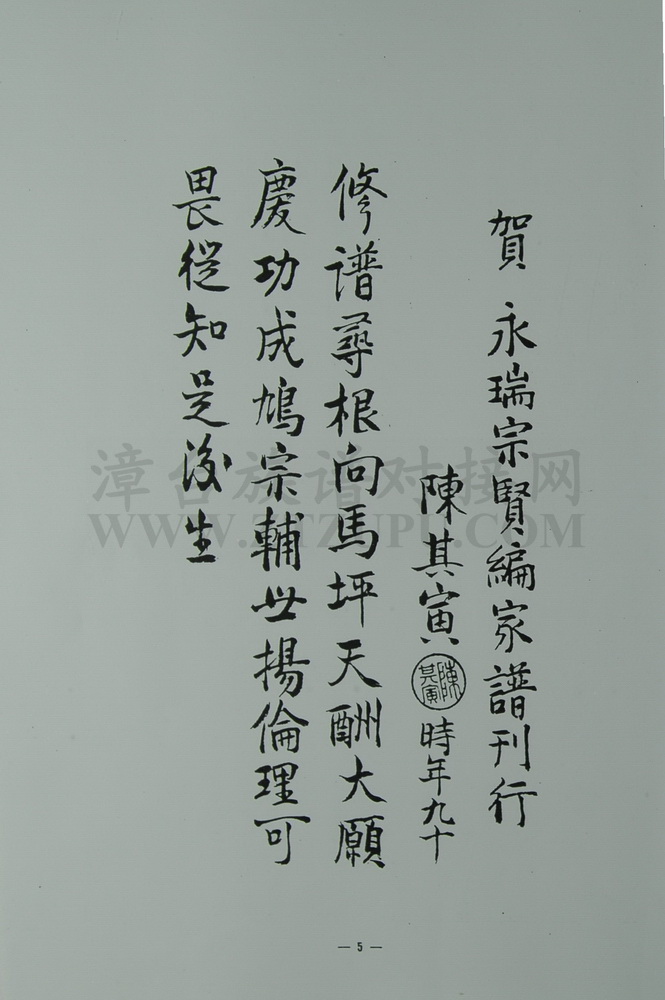 賀 永瑞宗賢編家譜刊行
陳其寅 陳其寅 時年九十
修譜尋根向馬坪天酬大願
慶功成鳩宗輔世揚倫理可
畏從知是後生
漳台族谱对接网
WWW.ZTZUPU.COM
— 5 —